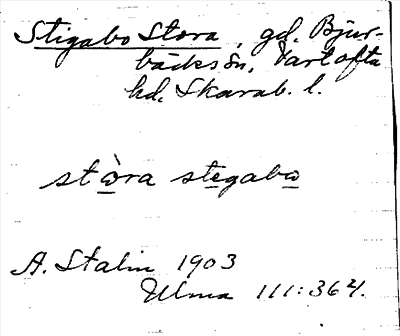 Stigabo Stora, gd. Bjur-
bäcks sn, Vartofta
hd. Skarab. l.
stòra stegabo
A. Stalin 1903
Ulma 111:364.